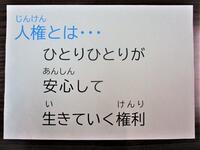 じんけん
人権とは・・・
ひとりひとりが
あんしん
安心して
い けんり
生きていく権利